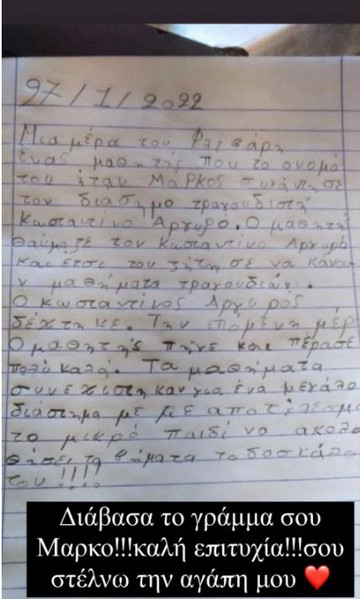 27/1/2022
Μια μέρα του Φλεβάρη
ένας μαθητής που το ονομά
του ήταν Μαρκος συνάντησε
τον διασημο τραγουδιστή
Κωσταντίνο Αργυρό. Ο μαθητή
θαύμαζε τον Κωσταντίνο Αργυρό
και έτσι του ζήτησε να κάνου
ν μαθήματα τραγουδιών.
Ο κωσταντίνος Αργυρος
δέχτηκε. Την επόμενη μέρ
Ο μαθητής πήγε και πέρασε
πολύ καλά. Τα μαθήματα
συνεχιστηκαν για ένα μεγάλο
διάστημα με με αποτέλεσμα
το μικρό παιδί να ακολο
θήσει τα βήματα το δασκάλο
του!!!!
Διάβασα το γράμμα σου
Μαρκο!!!καλή επιτυχία!!!σου
στέλνω την αγάπη μου ❤️